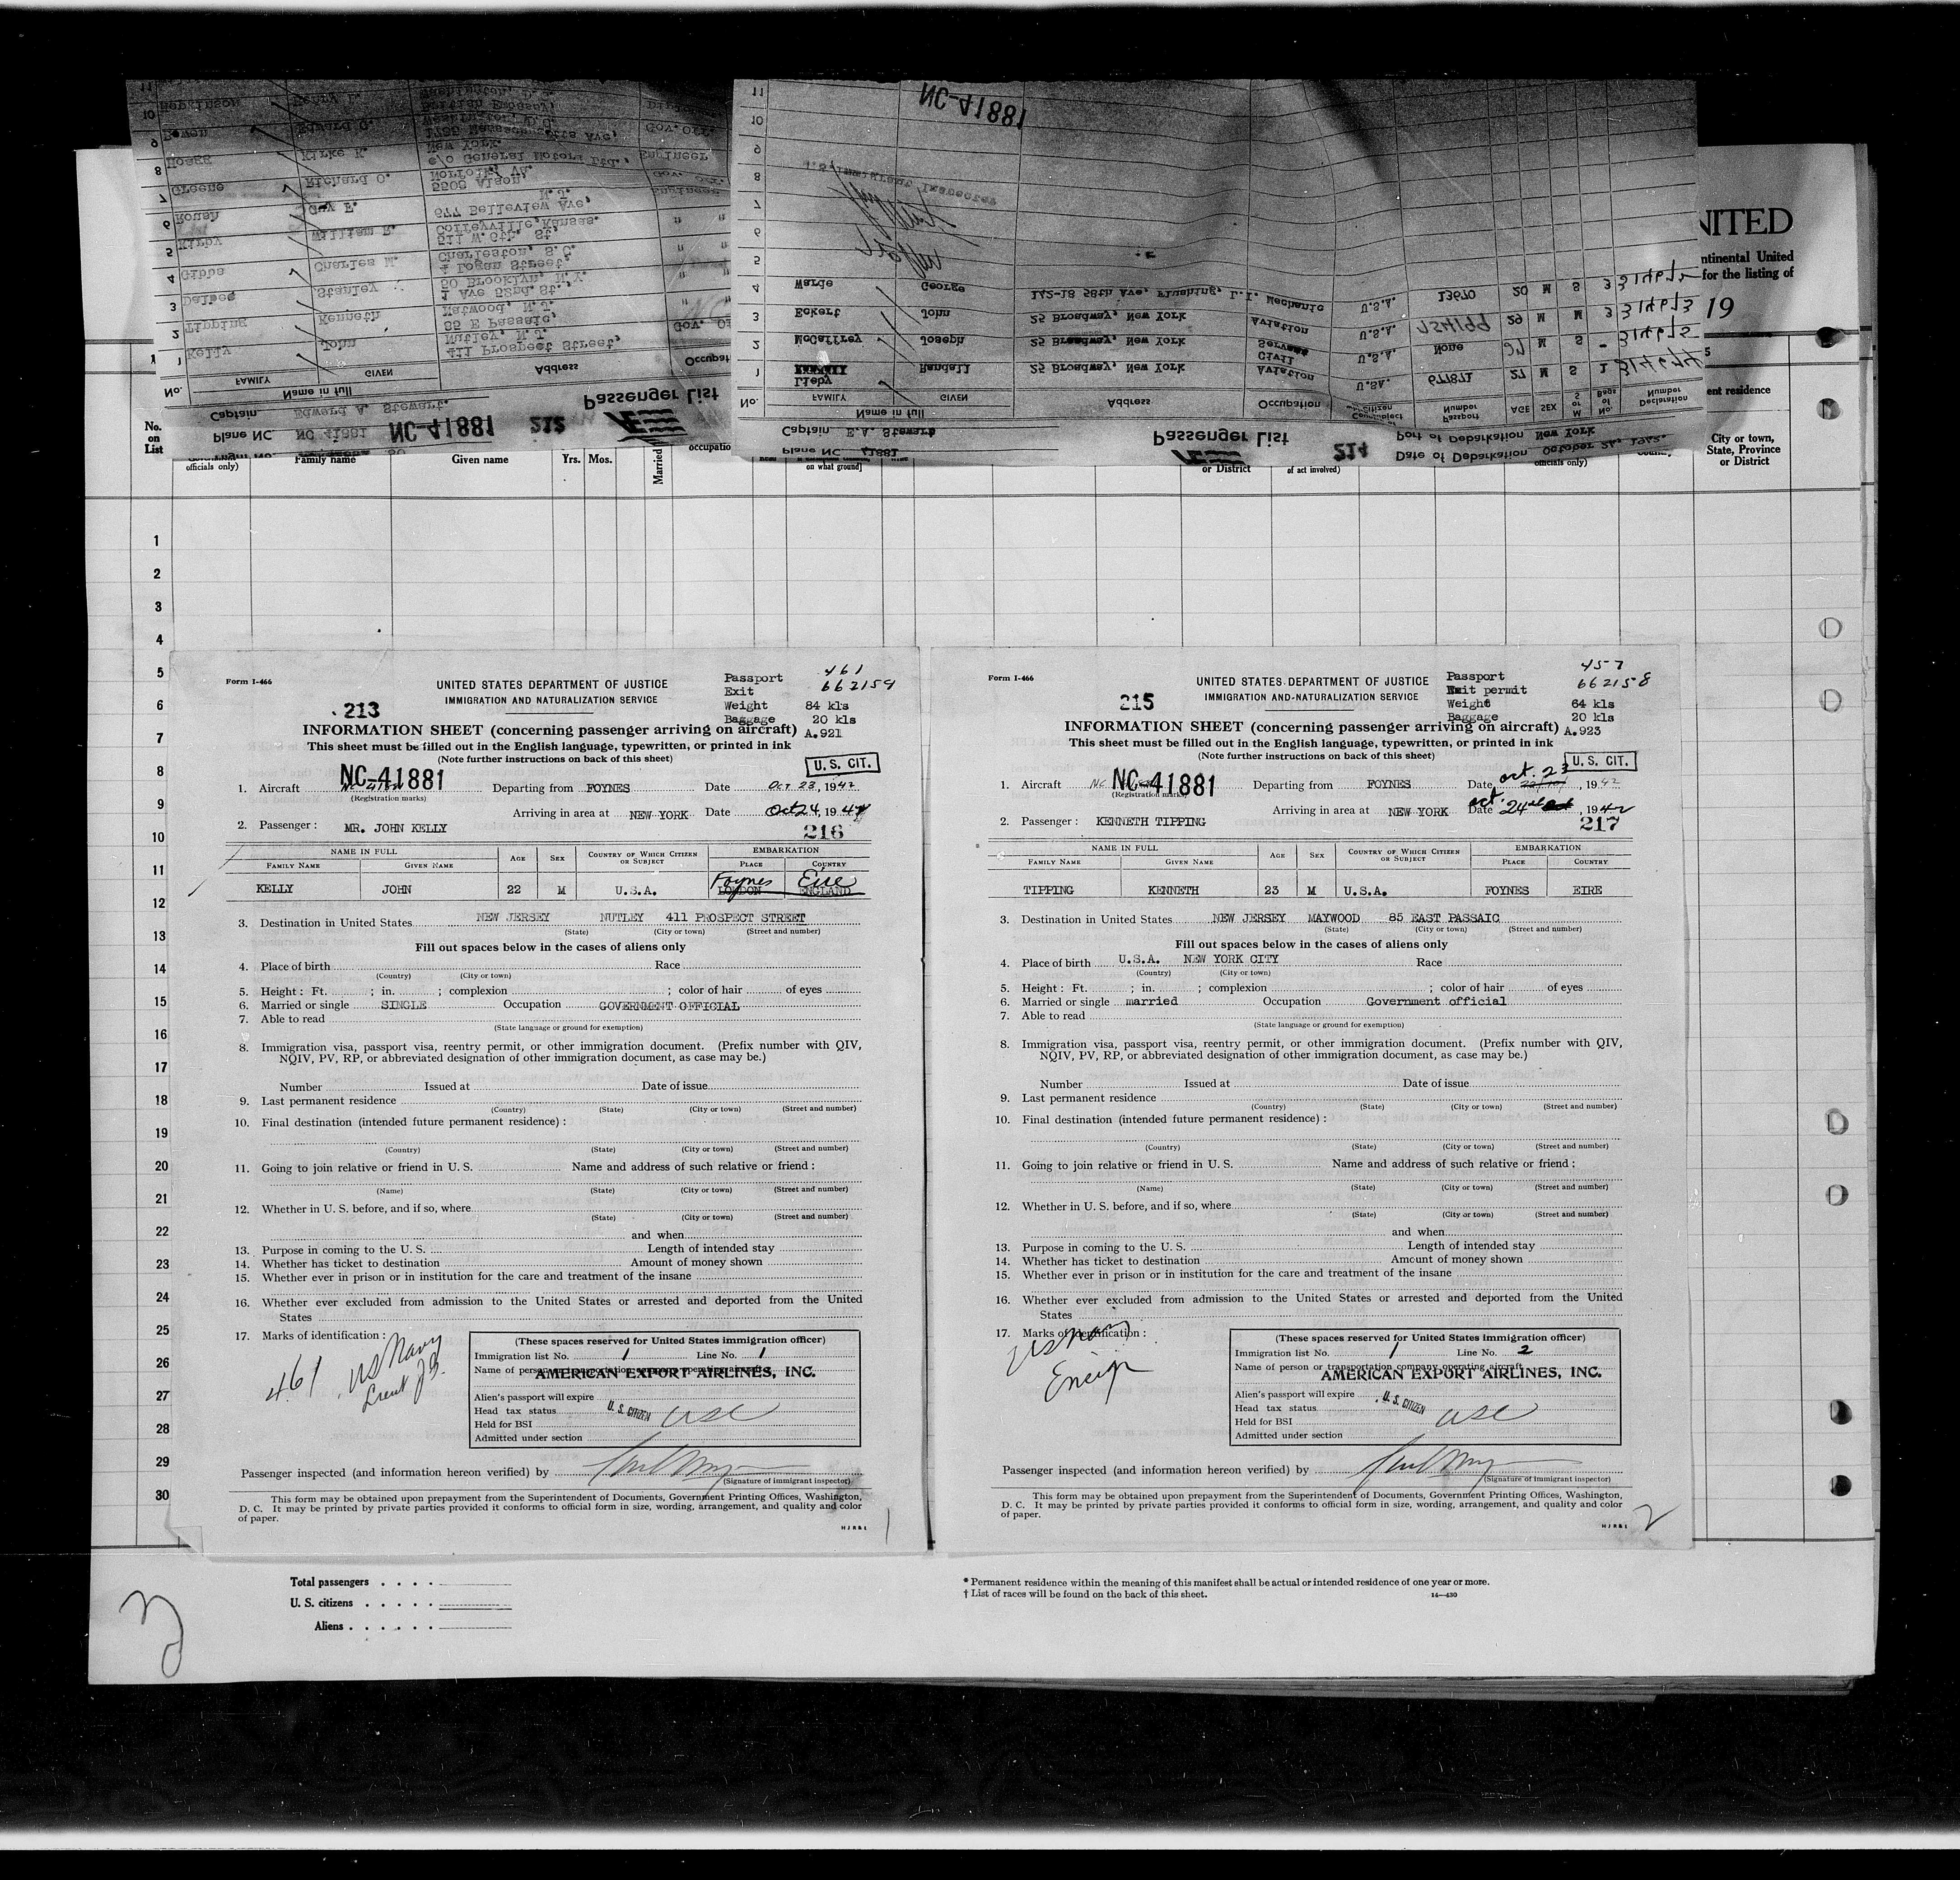 11
10 Hopkinson Henry L. British Embassy, Washington, D.C.
9 Bowen Edward G. 1785 Massachusetts Ave, Washington D.C. Gov.Off.
8 Hoagg Kirke K. c/o General Motors Ltd., New York. Engineer
7 Greene Richard O. 5505 Alson, Norfolk, VA.
6 Roush Guy F. 677 Belleview Ave, N.J. Engineer
5 Kirby William R. 511 W. 6th. St, Coffeyville, Kansas. " "
4 Gibbs Charles M. 4 Logan Street, Charleston, S.C. " "
3 Stanley 50 Brooklyn, N.Y. " "
2 Tipping Kenneth 85 E Passaic,
1 Kelly John 411 Prospect Street, Nutley, N.J. Gov.
No. FAMILY GIVEN Address Occupat
Name in full
Captain Edward A. Stewart.
Plane NC NC 41881 NC-41881 212 Passenger List
11 NC-41881
10
9
8 U.S. Immigrant Inspector
7
6
5
4 Warde George 142-18 58th Ave, Flushing, L.I. Mechanic U.S.A. 13670 20 M S 3
3 Eckert John 25 Broadway, New York Aviation U.S.A. 29 M M 3
2 McCaffrey Joseph 25 Broadway, New York Civil Servant U.S.A. None M S -
1 Lieby Randall 25 Broadway, New York Aviation U.S.A. 677871 27 M S 1
No. FAMILY GIVEN Address Occupation Passport Number AGE SEX S or M No. of Bags Declaration Number
Name in full
Captain E.A. Stewart
Plane NC 41881
Passenger List
214
Port of Debarkation New York
Date of Debarkation October 24, 1942.
NITED
ntinental United
for the listing of
19
ent residence
No. on List
officials only)
Family name
Given name
Yrs. Mos.
Married
occupatio
on what ground]
or District
of act involved)
officials only)
City or town, State, Province or District
1
2
3
4
5
6
7
8
9
10
11
12
13
14
15
16
17
18
19
20
21
22
23
24
25
26
27
28
29
30
Form I-466
UNITED STATES DEPARTMENT OF JUSTICE
IMMIGRATION AND NATURALIZATION SERVICE
Passport 461
Exit 662159
Weight 84 kls
Baggage 20 kls
213
INFORMATION SHEET (concerning passenger arriving on aircraft) A.921
This sheet must be filled out in the English language, typewritten, or printed in ink
(Note further instructions on back of this sheet)
U. S. CIT.
1. Aircraft NC-41881 Departing from FOYNES Date Oct 23, 1942
(Registration marks)
Arriving in area at NEW YORK Date Oct 24, 1942
2. Passenger : MR. JOHN KELLY 216
NAME IN FULL AGE SEX COUNTRY OF WHICH CITIZEN OR SUBJECT EMBARKATION
FAMILY NAME GIVEN NAME PLACE COUNTRY
Foynes Eire
KELLY JOHN 22 M U.S.A. LONDON ENGLAND
3. Destination in United States NEW JERSEY NUTLEY 411 PROSPECT STREET
(State) (City or town) (Street and number)
Fill out spaces below in the cases of aliens only
4. Place of birth Race
(Country) (City or town)
5. Height : Ft. ; in. ; complexion ; color of hair of eyes
6. Married or single SINGLE Occupation GOVERNMENT OFFICIAL
7. Able to read
(State language or ground for exemption)
8. Immigration visa, passport visa, reentry permit, or other immigration document. (Prefix number with QIV,
NQIV, PV, RP, or abbreviated designation of other immigration document, as case may be.)
Number Issued at Date of issue
9. Last permanent residence
(Country) (State) (City or town) (Street and number)
10. Final destination (intended future permanent residence) :
(Country) (State) (City or town) (Street and number)
11. Going to join relative or friend in U. S. Name and address of such relative or friend :
(Name) (State) (City or town) (Street and number)
12. Whether in U. S. before, and if so, where
(State) (City or town) (Street and number)
and when
13. Purpose in coming to the U. S. Length of intended stay
14. Whether has ticket to destination Amount of money shown
15. Whether ever in prison or in institution for the care and treatment of the insane
16. Whether ever excluded from admission to the United States or arrested and deported from the United
States
17. Marks of identification :
461 US Navy
Lieut JG.
(These spaces reserved for United States immigration officer)
Immigration list No. 1 Line No. 1
Name of person or transportation company operating aircraft
AMERICAN EXPORT AIRLINES, INC.
Alien's passport will expire
Head tax status U. S. CITIZEN usc
Held for BSI
Admitted under section
Passenger inspected (and information hereon verified) by
(Signature of immigrant inspector)
This form may be obtained upon prepayment from the Superintendent of Documents, Government Printing Offices, Washington,
D. C. It may be printed by private parties provided it conforms to official form in size, wording, arrangement, and quality and color
of paper.
1
Form I-466
UNITED STATES DEPARTMENT OF JUSTICE
IMMIGRATION AND NATURALIZATION SERVICE
Passport 457
Exit permit 662158
Weight 64 kls
Baggage 20 kls
215
INFORMATION SHEET (concerning passenger arriving on aircraft) A.923
This sheet must be filled out in the English language, typewritten, or printed in ink
(Note further instructions on back of this sheet)
U. S. CIT.
1. Aircraft NC-41881 Departing from FOYNES Date oct. 23, 1942
(Registration marks)
Arriving in area at NEW YORK Date oct. 24, 1942
2. Passenger : KENNETH TIPPING 217
NAME IN FULL AGE SEX COUNTRY OF WHICH CITIZEN OR SUBJECT EMBARKATION
FAMILY NAME GIVEN NAME PLACE COUNTRY
TIPPING KENNETH 23 M U.S.A. FOYNES EIRE
3. Destination in United States NEW JERSEY MAYWOOD 85 EAST PASSAIC
(State) (City or town) (Street and number)
Fill out spaces below in the cases of aliens only
4. Place of birth U.S.A. NEW YORK CITY Race
(Country) (City or town)
5. Height : Ft. ; in. ; complexion ; color of hair of eyes
6. Married or single married Occupation Government official
7. Able to read
(State language or ground for exemption)
8. Immigration visa, passport visa, reentry permit, or other immigration document. (Prefix number with QIV,
NQIV, PV, RP, or abbreviated designation of other immigration document, as case may be.)
Number Issued at Date of issue
9. Last permanent residence
(Country) (State) (City or town) (Street and number)
10. Final destination (intended future permanent residence) :
(Country) (State) (City or town) (Street and number)
11. Going to join relative or friend in U. S. Name and address of such relative or friend :
(Name) (State) (City or town) (Street and number)
12. Whether in U. S. before, and if so, where
(State) (City or town) (Street and number)
and when
13. Purpose in coming to the U. S. Length of intended stay
14. Whether has ticket to destination Amount of money shown
15. Whether ever in prison or in institution for the care and treatment of the insane
16. Whether ever excluded from admission to the United States or arrested and deported from the United
States
17. Marks of identification :
US Navy
Ensign
(These spaces reserved for United States immigration officer)
Immigration list No. 1 Line No. 2
Name of person or transportation company operating aircraft
AMERICAN EXPORT AIRLINES, INC.
Alien's passport will expire
Head tax status U. S. CITIZEN usc
Held for BSI
Admitted under section
Passenger inspected (and information hereon verified) by
(Signature of immigrant inspector)
This form may be obtained upon prepayment from the Superintendent of Documents, Government Printing Offices, Washington,
D. C. It may be printed by private parties provided it conforms to official form in size, wording, arrangement, and quality and color
of paper.
2
Total passengers . . . .
U. S. citizens . . . . .
Aliens . . . . . .
* Permanent residence within the meaning of this manifest shall be actual or intended residence of one year or more.
† List of races will be found on the back of this sheet.
14—430